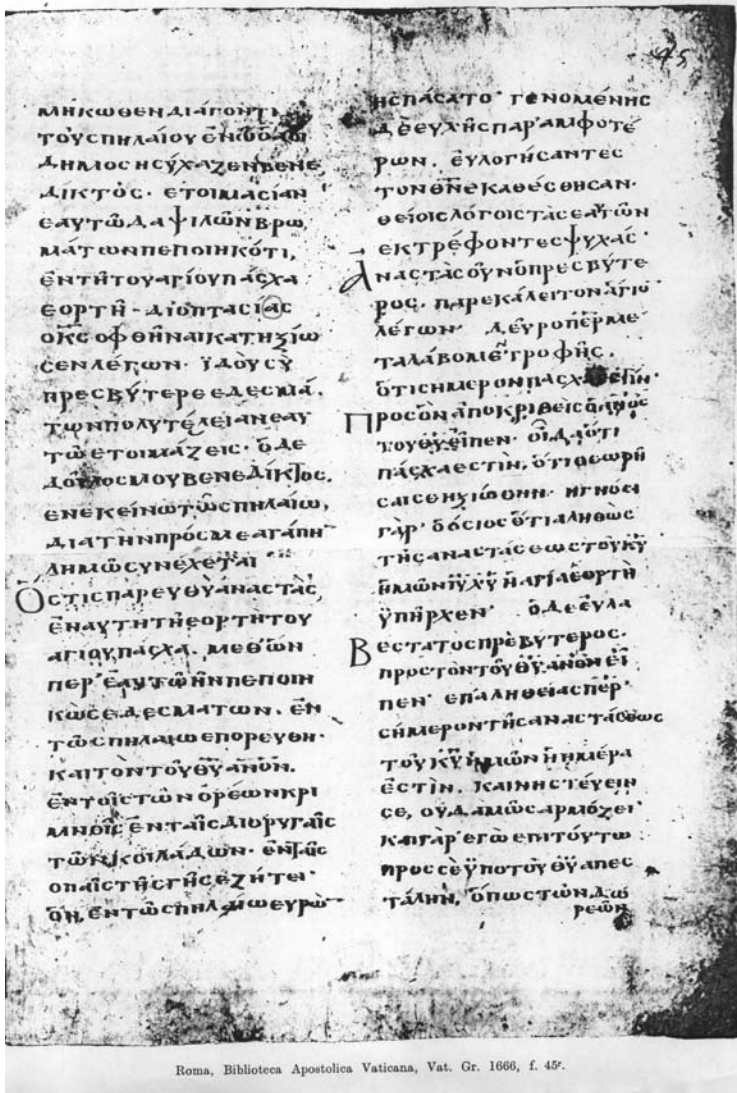 45
ΜΗΚΩΘΕΝΔΙΆΓΟΝΤΙ
ΤΟΥ̂ΣΠΗΛΑΊΟΥ ἘΝ
ΔΗΜΟΣΗΣΎΧΑΖΕΝΒΕΝΕ
ΔΙΚΤΟΣ· ΕΤΟΙΜΑΣΊΑΝ
ΕΑΥΤΩ͂ΔΑΨΙΛΩ͂ΝΒΡΩ
ΜΆΤΩΝΠΕΠΟΙΗΚΌΤΙ,
ἘΝΤΗ͂ΤΟΥΑΓΊΟΥΠΆΣΧΑ
ΕΟΡΤΗ͂ - ΔΙΟΠΤΑΣΊΑΣ
ΟΚ̅Σ̅ΟΦΘΗ͂ΝΑΙΚΑΤΗΞΊΩ
ΣΕΝΛΈΓΩΝ· ΪΔΟῪΣῪ
ΠΡΕΣΒΎΤΕΡΕΕΔΕΣΜΆ
ΤΩΝΠΟΛΥΤΈΛΕΙΑΝΕΑΥ
ΤΩ͂ΕΤΟΙΜΆΖΕΙΣ· ὉΔΕ
ΔΟΥ͂ΛΟΣΜΟΥΒΕΝΕΔΊΚΤΟΣ,
ΕΝΕΚΕΊΝΩΤΩ͂ΣΠΗΛΑΊΩ,
ΔΙΑΤῊΝΠΡΌΣΜΕΑΓΆΠΗ
ΛΗΜΩ͂ΣΥΝΈΧΕΤΑΙ
ὍΣΤΙΣΠΑΡΕΥΘῪΑΝΑΣΤᾺΣ,
ἘΝΑΥΤΗΤΗΕΟΡΤΗΤΟΥ
ΑΓΊΟΥΠΆΣΧΑ, ΜΕΘΩ͂Ν
ΠΕΡ ἙΑΥΤΩ͂ΗΝΠΕΠΟΙΗ
ΚΩΣΕΔΕΣΜΆΤΩΝ. ἘΝ
ΤΩ͂ΣΠΗΛΑΊΩΕΠΟΡΕΎΘΗ·
ΚΑΙΤΟΝΤΟΥ͂Θ̅Υ̅Α̅Ν̅Ο̅Ν̅.
ἘΝΤΟΙ͂ΣΤΩ͂ΝΟΡΈΩΝΚΡΙ
ΜΝΟΙ͂ΣἘΝΤΑΙ͂ΣΔΙΟΡΥΓΑΙΣ
ΤΩ͂ΝΚΟΙΛΆΔΩΝ· ἘΝΤΑΙΣ
ΟΠΑΙ͂ΣΤΗΣΓΗ͂ΣΕΖΉΤΕΙ·
ὋΝ, ΕΝΤΩ͂ΣΠΗΛΑΊΩΕΥΡῺ
ΗΣΠΆΣΑΤΟ· ΓΕΝΟΜΈΝΗΣ
ΔῈΕΥΧΗ͂ΣΠΑΡ'ΑΜΦΟΤΈ
ΡΩΝ. ΕΥΛΟΓΉΣΑΝΤΕΣ
ΤΟΝΘ̅Ν̅ΕΚΑΘΈΣΘΗΣΑΝ·
ΘΕΊΟΙΣΛΌΓΟΙΣΤΆΣΕΑΥΤΩΝ
ΕΚΤΡΈΦΟΝΤΕΣΨΥΧΆΣ·
ἈΝΑΣΤᾺΣΟΥ͂ΝὉΠΡΕΣΒΎΤΕ
ΡΟΣ. ΠΑΡΕΚΆΛΕΙΤΟΝἉΓΙΟ
ΛΈΓΩΝ· ΔΕΥ͂ΡΟΠΕΡΜΕ
ΤΑΛΆΒΟΜΕ͂ΤΡΟΦΗ͂Σ,
ὍΤΙΣΗΜΕΡΟΝΠΆΣΧΑΕΣΤΊΝ·
ΠΡΟΣὋΝΑΠΟΚΡΙΘΕῚΣὉΑ̅Ν̅Ο̅Σ̅
ΤΟΥΘ̅Υ̅ΕΙ͂ΠΕΝ· ΟΙ͂ΔΑὍΤΙ
ΠΆΣΧΑΕΣΤΊΝ, ὍΤΙΘΕΩΡΗ͂
ΣΑΙΣΕΗΞΙΏΘΗΝ· ΗΓΝΌΕΙ
ΓᾺΡ ὉὍΣΙΟΣὍΤΙΑΛΗΘΩ͂Σ
ΤΗ͂ΣΑΝΑΣΤΆΣΕΩΣΤΟΥ͂Κ̅Υ̅
ἩΜΩ͂ΝΙ̅Υ̅Χ̅Υ̅ἩΑΓΊΑΕΟΡΤῊ
ΫΠΗ͂ΡΧΕΝ· ὉΔΕΕΥΛΑ
ΒΕΣΤΑΤΟΣΠΡΕΒΎΤΕΡΟΣ.
ΠΡΟΣΤῸΝΤΟΥ͂Θ̅Υ̅Α̅Ν̅Ο̅Ν̅ΕΙ͂
ΠΕΝ· ΕΠΑΛΗΘΕΊΑΣΠΕΡ
ΣΉΜΕΡΟΝΤΗ͂ΣΑΝΑΣΤΆΣΕΩΣ
ΤΟΥΚ̅Υ̅ἩΜΩ͂ΝἩΗΜΈΡΑ
ΕΣΤῚΝ. ΚΑΙΝΗΣΤΈΥΕΙΝ
ΣΕ, ΟΥΔΑΜΩ͂ΣΑΡΜΌΖΕΙ·
ΚΑΙΓᾺΡ ΕΓῺΕΠΙΤΟΎΤΩ
ΠΡΟΣΣῈΫΠΟΤΟΥ͂Θ̅Υ̅ΑΠΕΣ
ΤΆΛΗΝ, ὍΠΩΣΤΩ͂ΝΔΩ
ΡΕΩ͂Ν
Roma, Biblioteca Apostolica Vaticana, Vat. Gr. 1666, f. 45r.